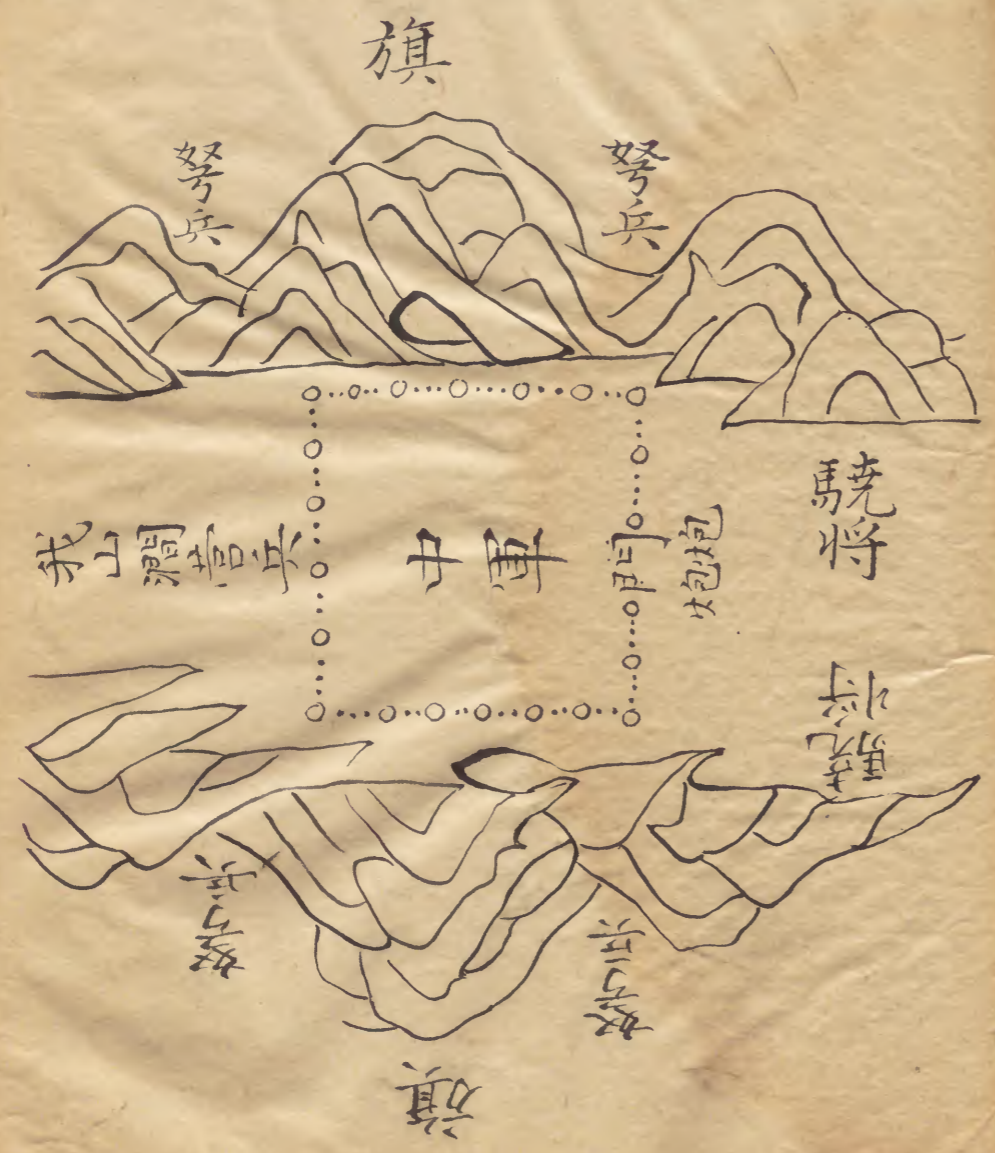 旗
弩兵
弩兵
驍將
我山澗營兵
中軍
門
炮炮
驍將
弩兵
弩兵
旗